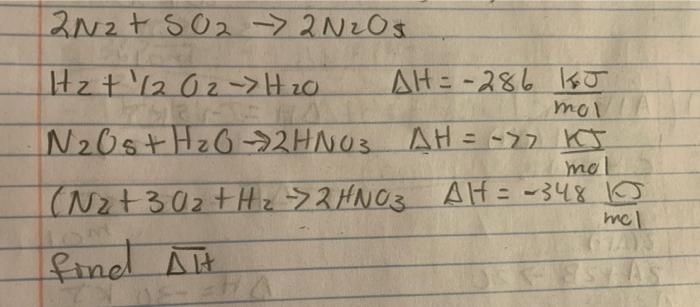 2N2 + 5O2 → 2N2O5
H2 + 1/2 O2 → H2O ΔH = -286 KJ/mol
N2O5 + H2O → 2HNO3 ΔH = -77 KJ/mol
(N2 + 3O2 + H2 → 2HNO3 ΔH = -348 KJ/mol
find ΔH